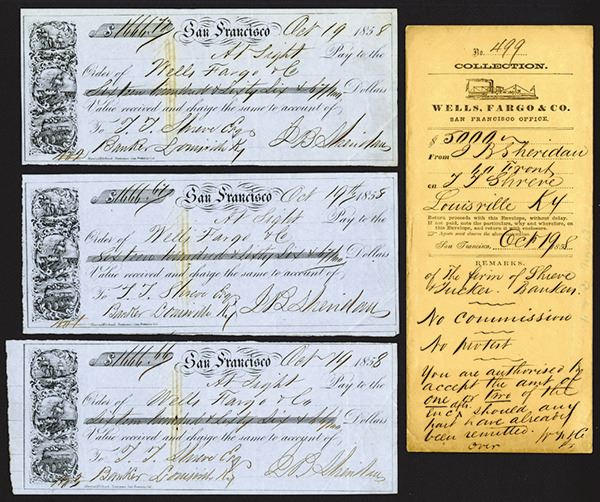 $1666.70 San Francisco Oct 19 1858
At Sight Pay to the
Order of Wells Fargo & Co
Sixteen hundred & Sixty Six & 67/100 Dollars
Value received and charge the same to account of
To T. T. Shreve Esq J B Sheridan
Banker Louisville Ky
$1666.67 San Francisco Oct 19th 1858
At Sight Pay to the
Order of Wells Fargo & Co
Sixteen hundred & Sixty Six & 67/100 Dollars
Value received and charge the same to account of
To T. T. Shreve Esq
Banker Louisville Ky J B Sheridan
$1666.66 San Francisco Oct 19 1858
At Sight Pay to the
Order of Wells Fargo & Co
Sixteen hundred & Sixty Six & Dollars
Value received and charge the same to account of
To T. T. Shreve Esq
Banker Louisville Ky J B Sheridan
No. 499
COLLECTION.
WELLS, FARGO & CO.
SAN FRANCISCO OFFICE.
$ 5000
From J B Sheridan
on T T Shreve
Louisville Ky
Return proceeds with this Envelope, without delay.
If not paid, note the particulars, why and wherefore, on
this Envelope, and return it with enclosure.
San Francisco, Oct 19 1858
REMARKS.
of The firm of Shreve
& Tucker. Bankers.
No Commission
No protest
You are authorised to
accept the amt of
one or two of the
dfts. should any
part have already
been remitted.
over W F & Co